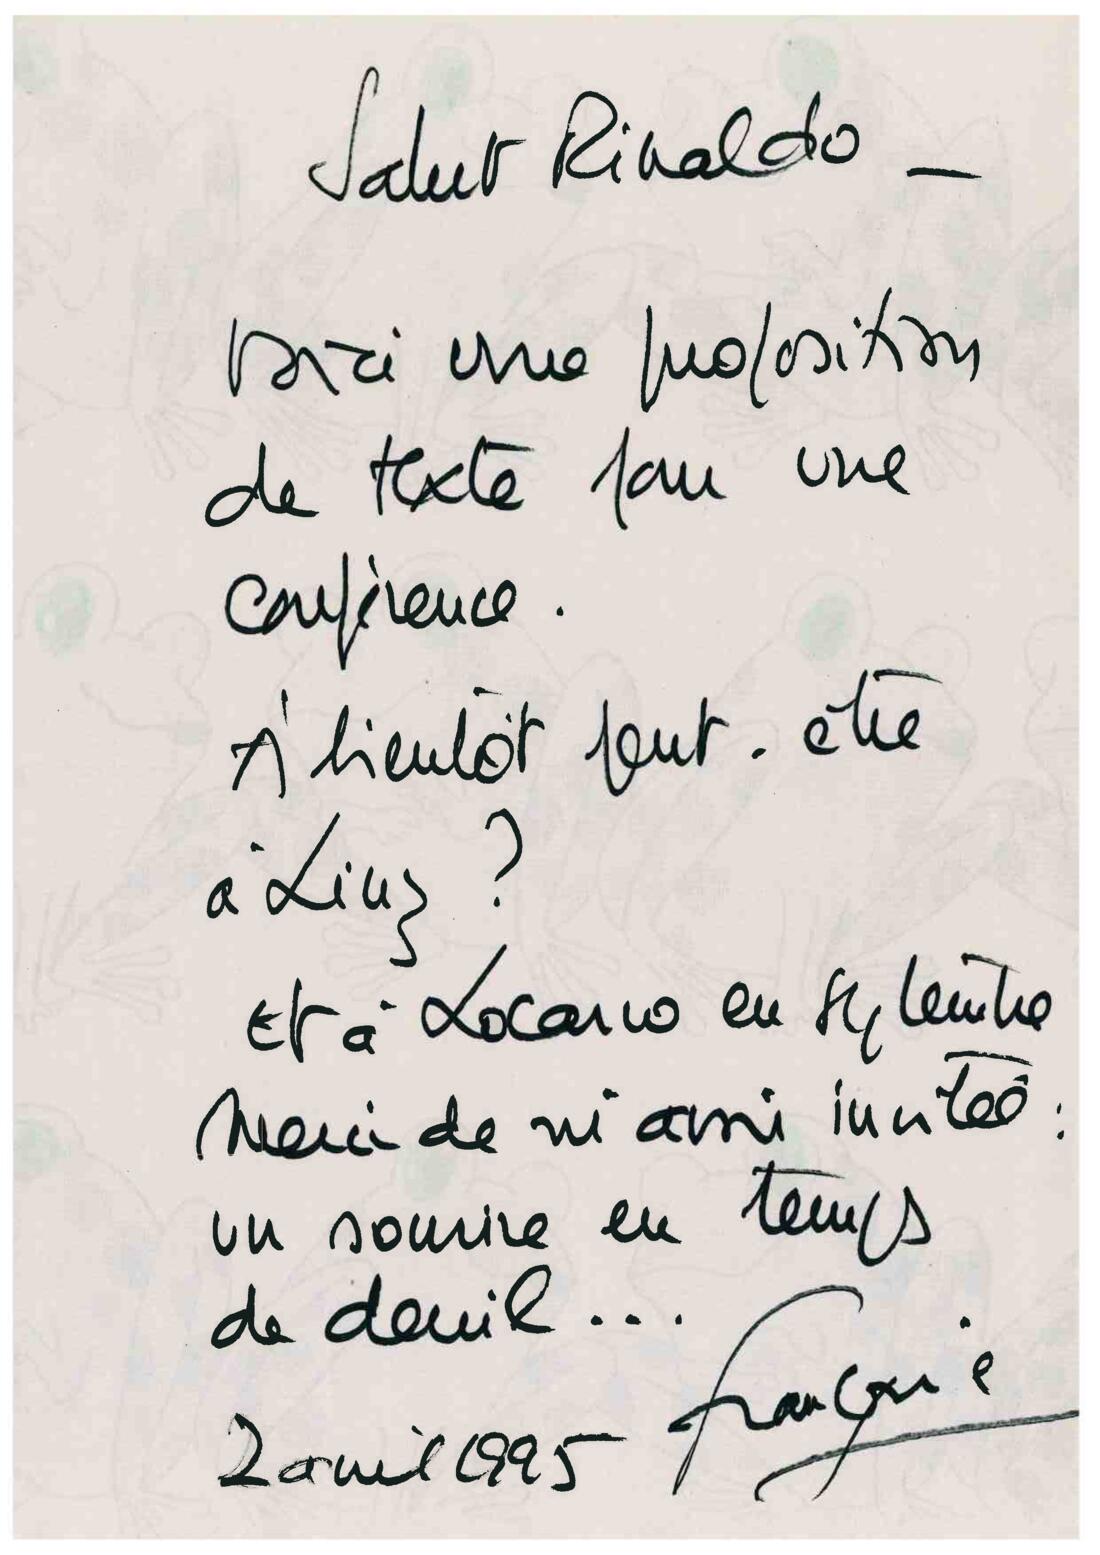 Salut Rinaldo —
Voici une proposition
de texte pour une
conférence.
À bientôt peut-être
à Linz ?
Et à Locarno en septembre
Merci de m'avoir invitée :
un sourire en temps
de deuil...
Françoise
2 avril 1995